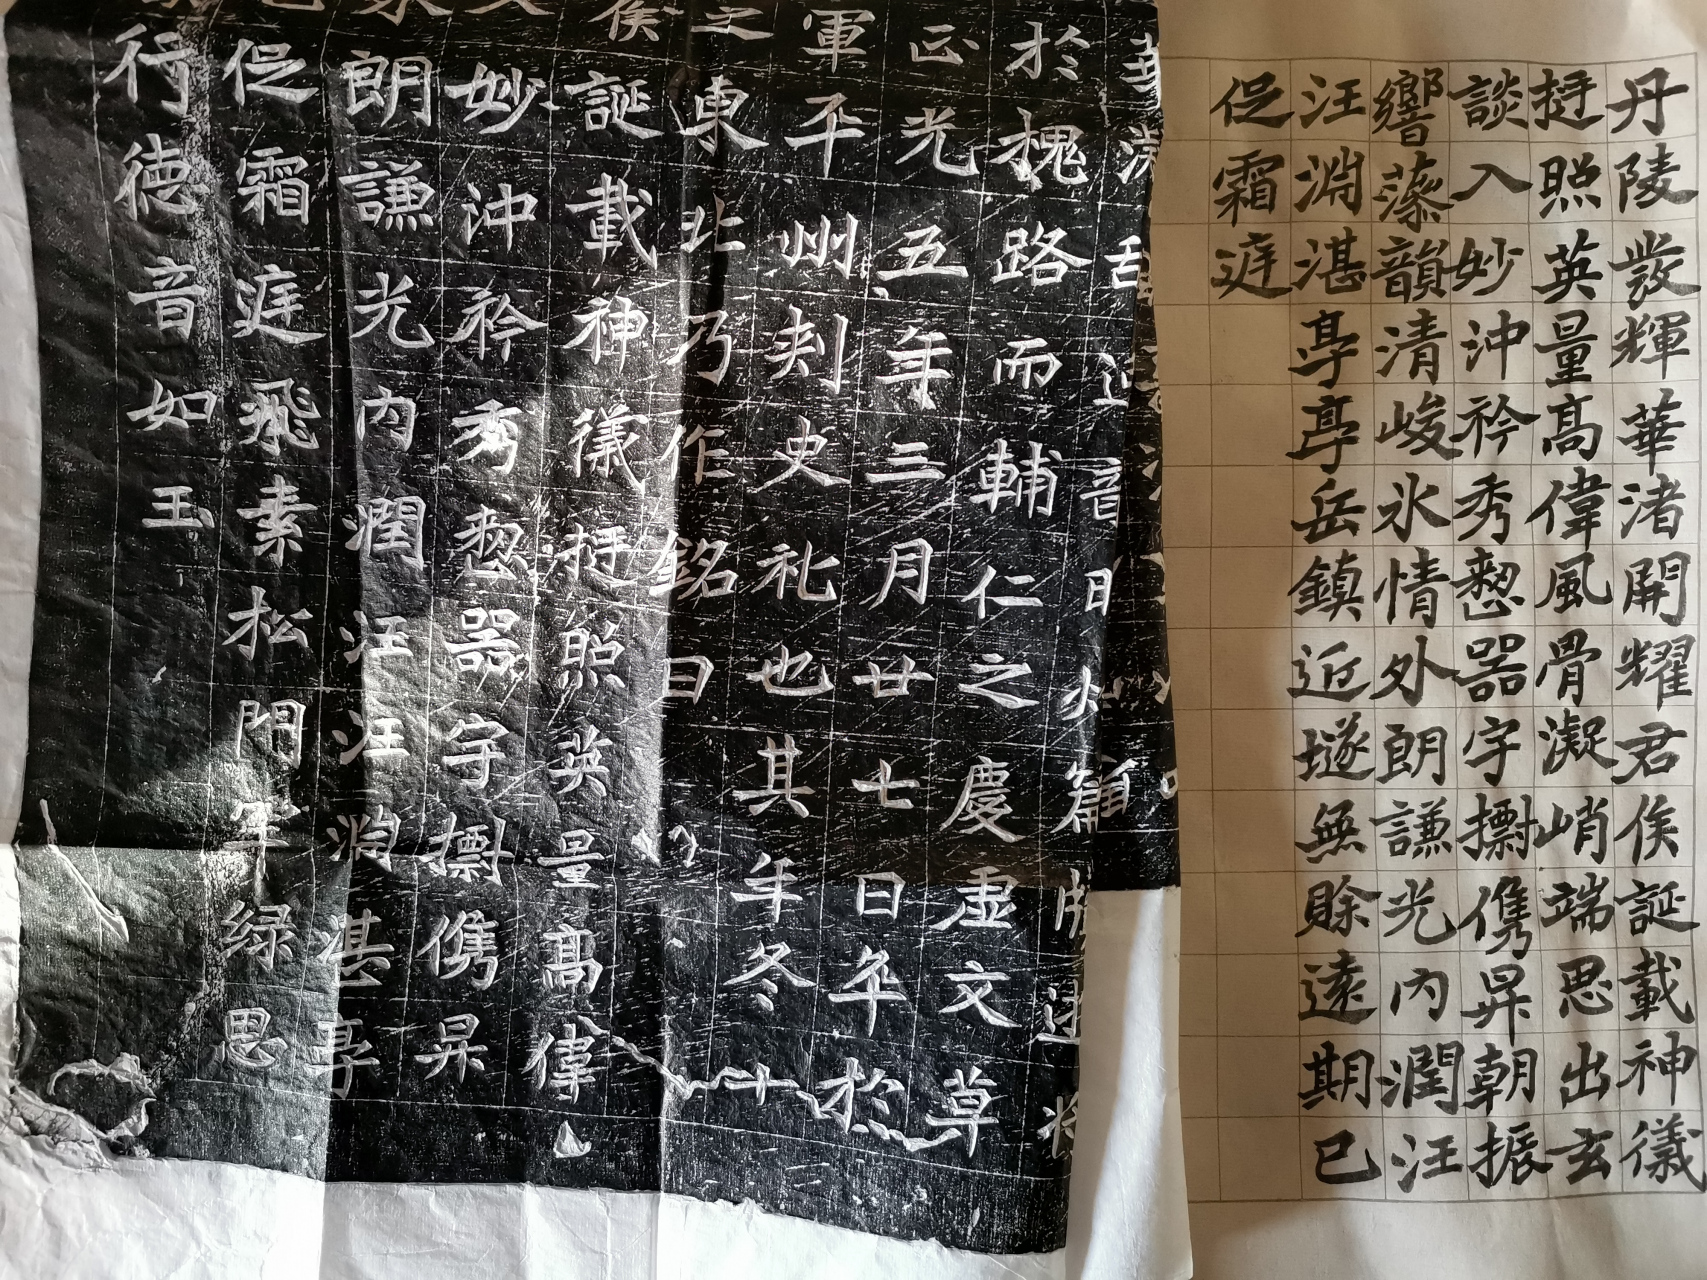 丹陵發輝華渚開耀君侯誕載神儀
挺照英量高偉風骨凝峭端思出玄
談入妙沖衿秀整器宇摽儁昇朝振
響藻韻清峻氷情外朗謙光內潤汪
汪淵湛亭亭岳鎮近墜無賒遠期已
促霜庭
於槐路而輔仁之慶虛文草
正光五年三月廿七日卒於
軍平州刾史礼也其年冬十
之東北乃作銘曰
侯誕載神儀挺照英量高偉
妙沖衿秀整器宇摽儁昇
朗謙光內潤汪汪淵湛亭
促霜庭飛素松門緑思
行德音如玉